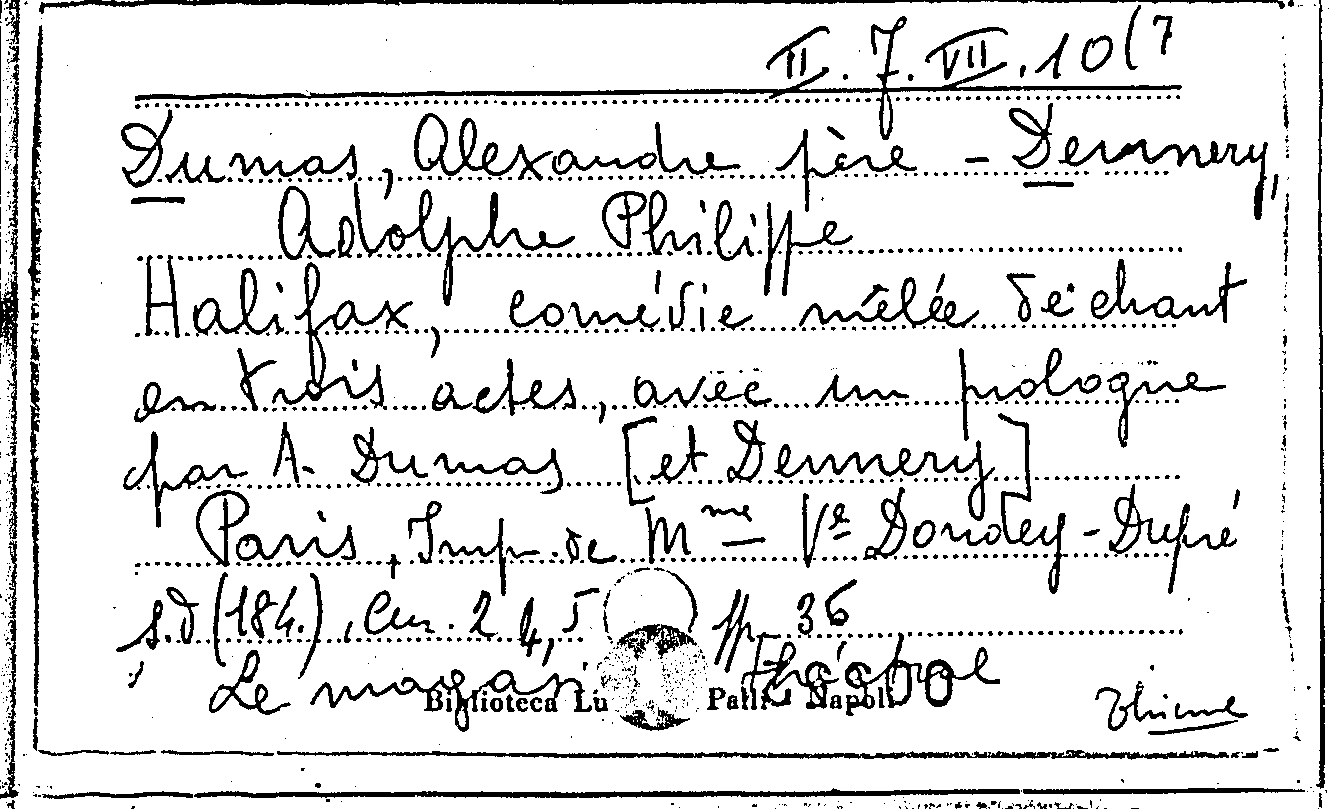 II. 7. VII. 10(7
Dumas, Alexandre père - Dennery,
Adolphe Philippe
Halifax, comédie mêlée de chant
en trois actes, avec un prologue
par A. Dumas [et Dennery]
Paris, Imp. de Mme Ve Dondey-Dupré
s.d (184.), cm. 24,5 pp. 36
Le magasin théâtral
Biblioteca Lu Palli Napoli
Thieme